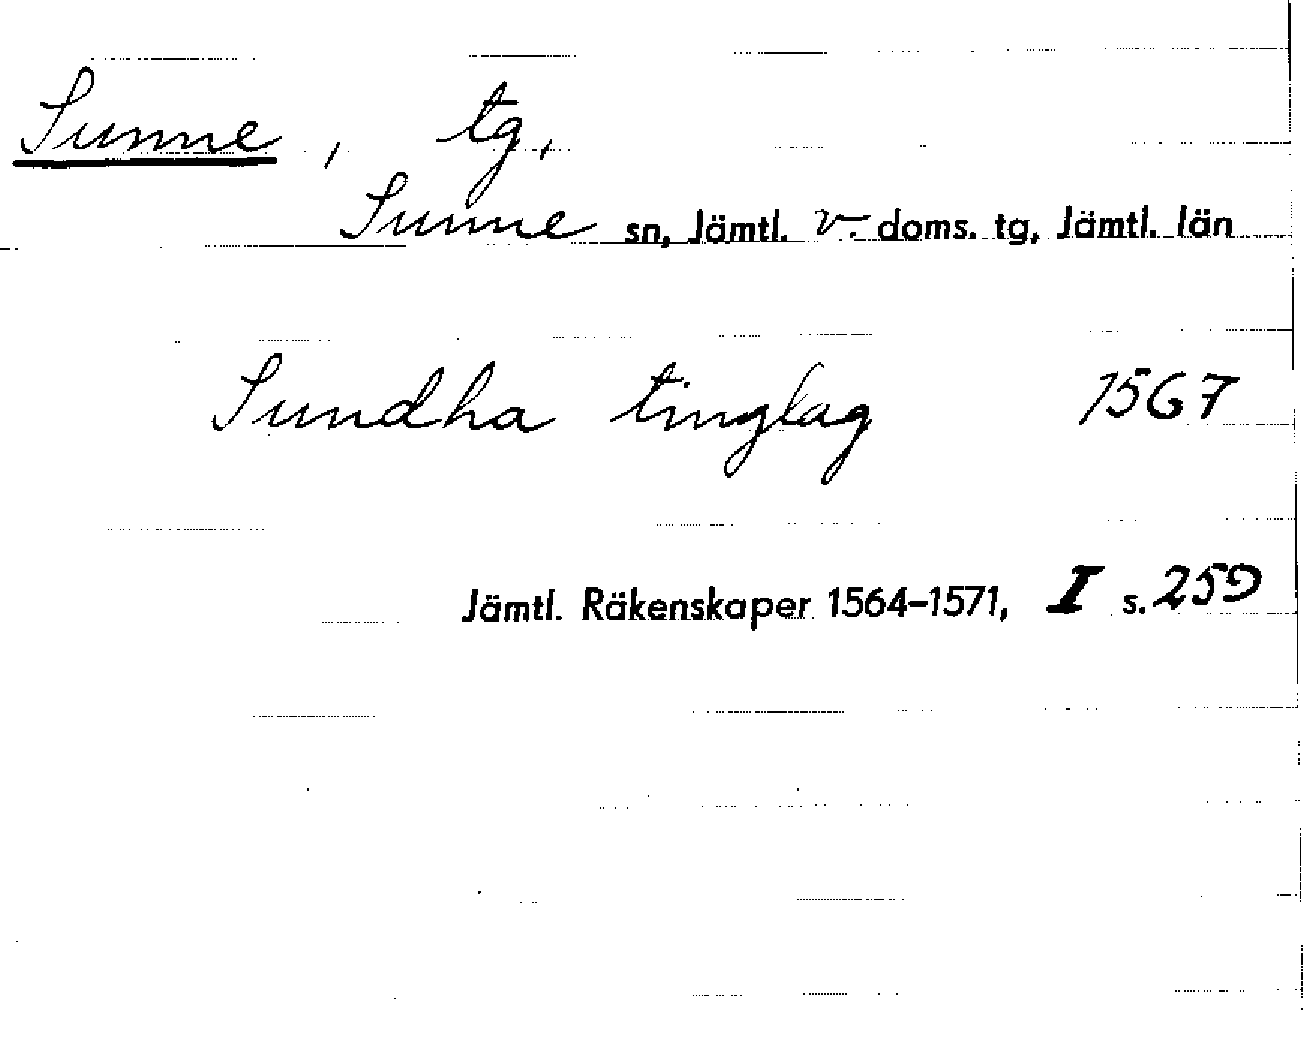 Sunne, tg,
Sunne sn, Jämtl. v. doms. tg, Jämtl. län
Sundha tinglag 1567
Jämtl. Räkenskaper 1564-1571, I s. 259